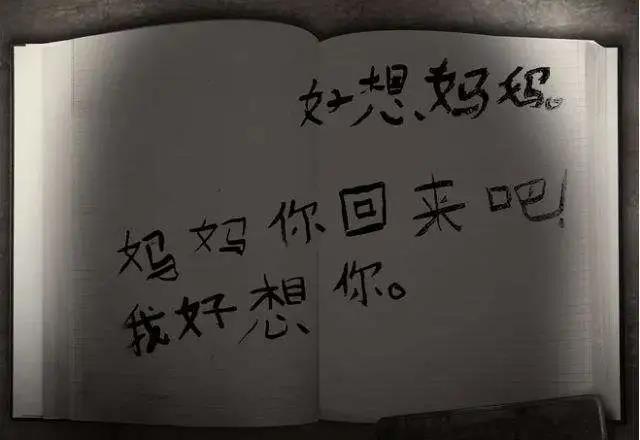 好想妈妈。
妈妈你回来吧!
我好想你。